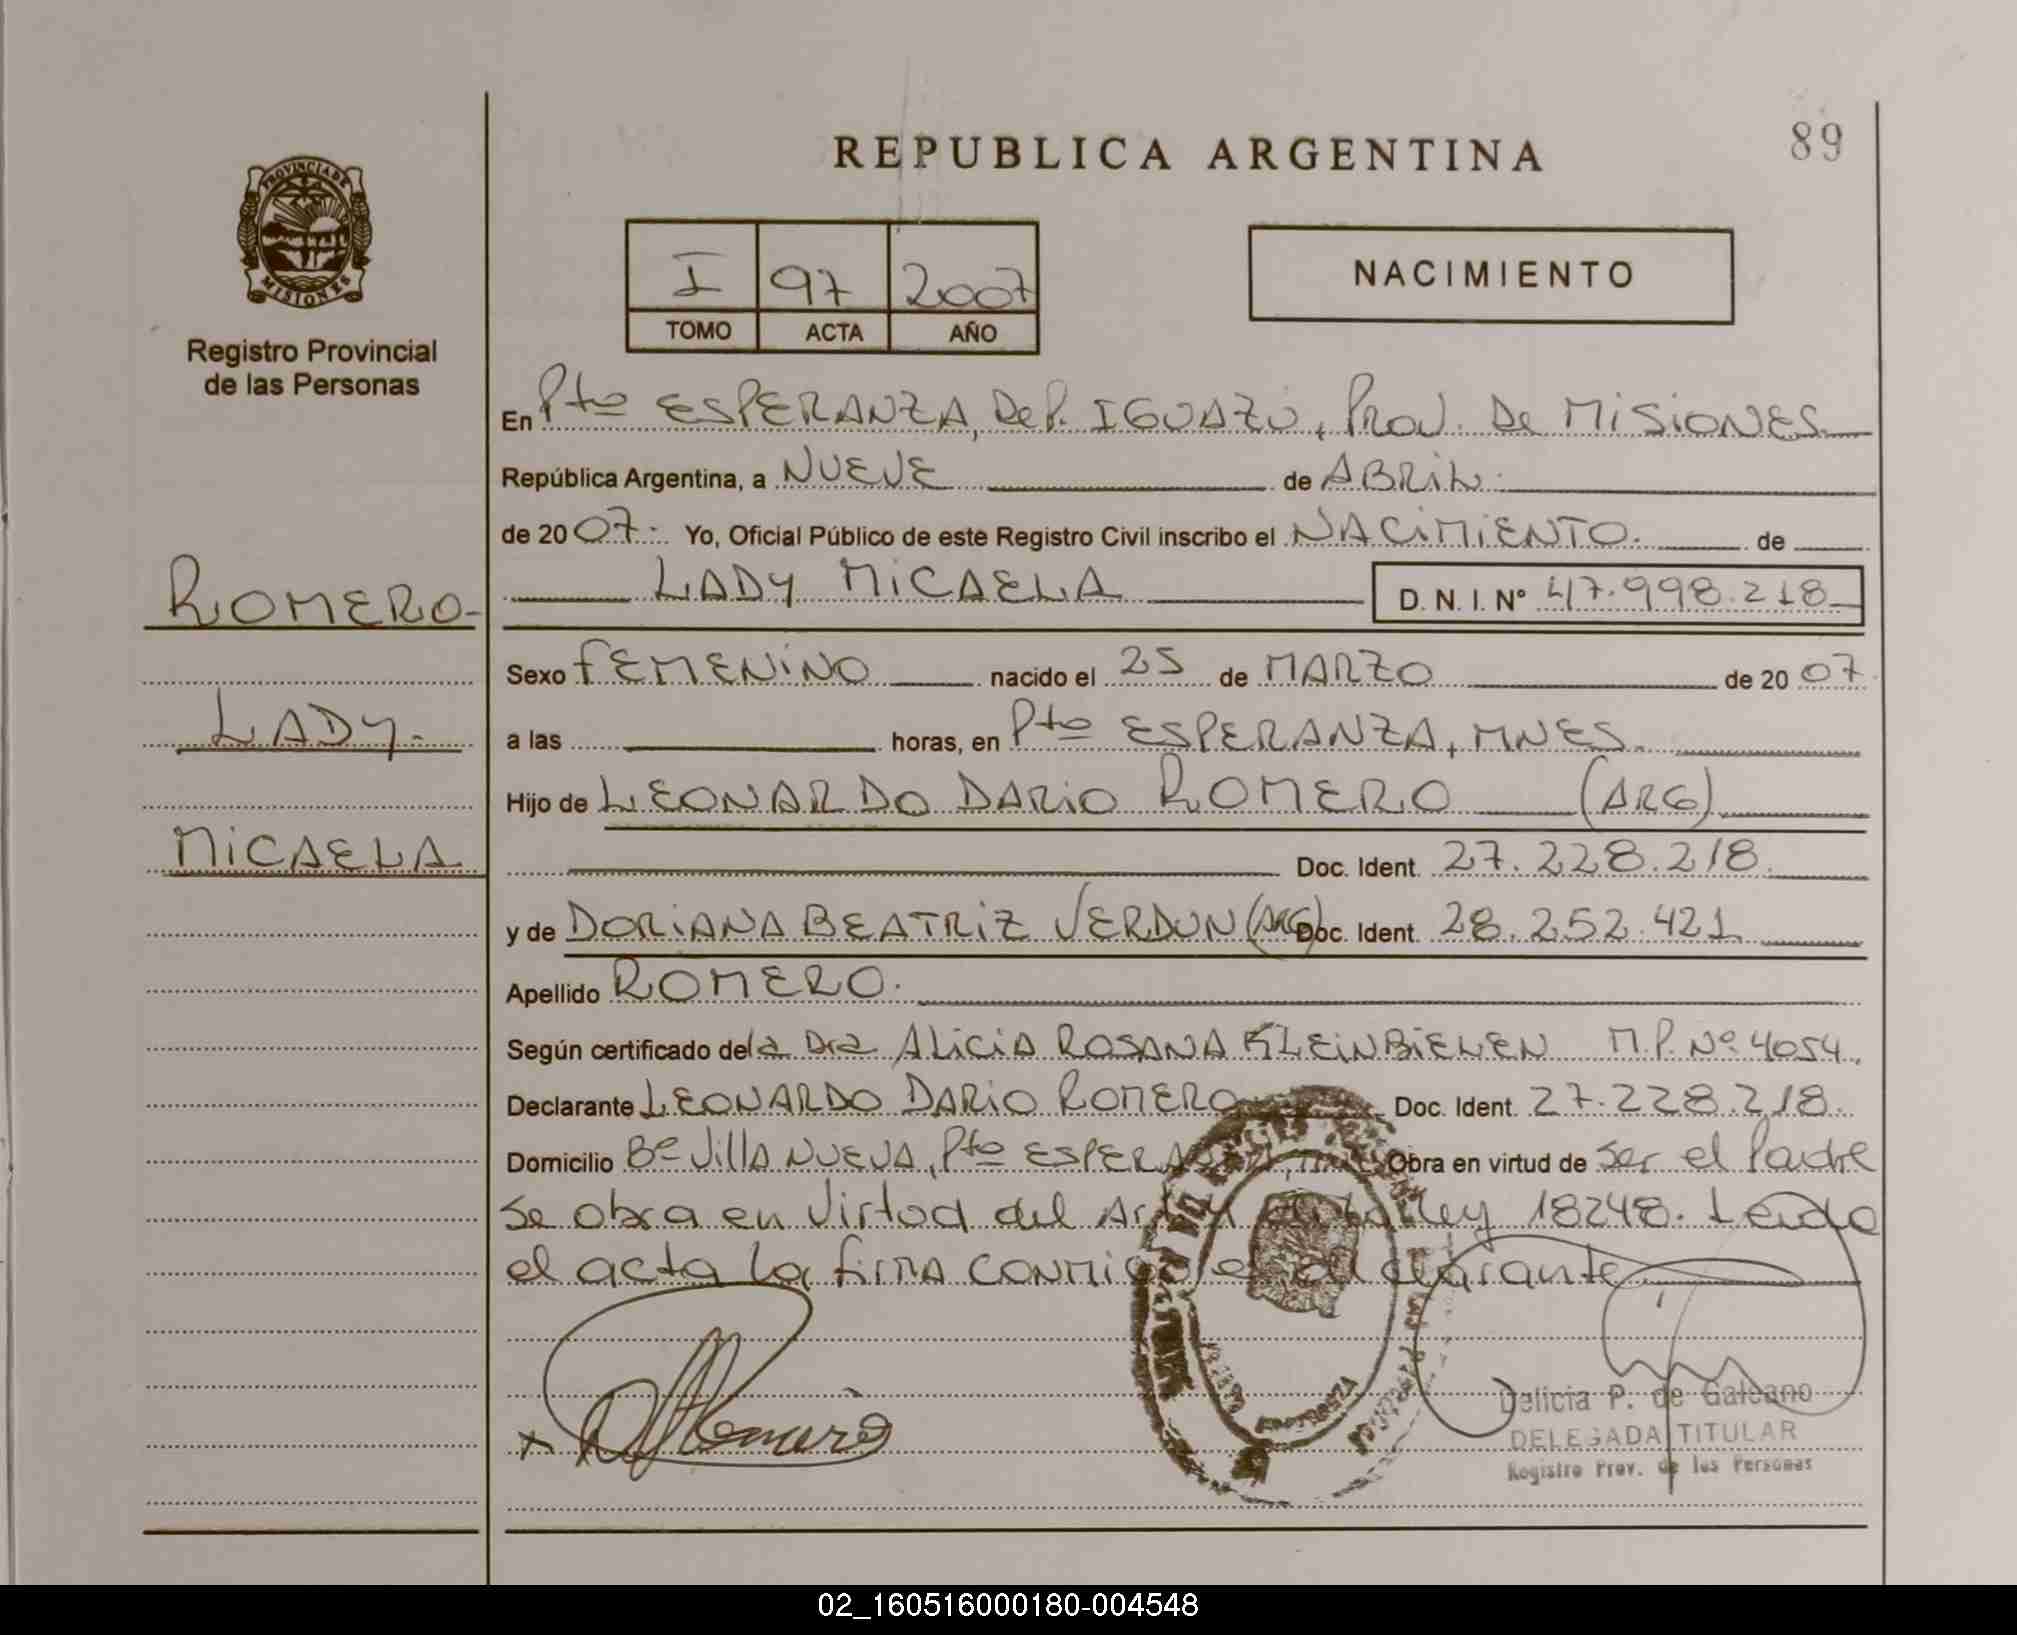 REPUBLICA ARGENTINA
89
PROVINCIA DE
MISIONES
Registro Provincial
de las Personas
I 97 2007
TOMO ACTA AÑO
NACIMIENTO
En Pto ESPERANZA, DeP. IGUAZÚ, Prov. De MiSiONES
República Argentina, a NUEVE de ABRiL.
de 20 07. Yo, Oficial Público de este Registro Civil inscribo el NACiMiENTO. de
LADY MiCAELA D. N. I. Nº 47.998.218
ROMERO
LADY.
MiCAELA
Sexo FEMENiNO nacido el 25 de MARZO de 20 07.
a las horas, en Pto ESPERANZA, MNES.
Hijo de LEONARDO DARiO ROMERO (ARG)
Doc. Ident. 27.228.218.
y de DORiANA BEATRiZ VERDUN (ARG) Doc. Ident. 28.252.421
Apellido ROMERO.
Según certificado de la Dra ALiCiA ROSANA KLEiNBiELEN M.P. Nº 4054.
Declarante LEONARDO DARiO ROMERO Doc. Ident. 27.228.218.
Domicilio Bº Villa NUEVA, Pto ESPERA Obra en virtud de ser el Padre
Se obra en Virtud del Ley 18248. Leída
el acta la firMA CONMigo el declarante
Romero
Delicia P. de Galeano
DELEGADA TITULAR
Registro Prov. de las Personas
02_160516000180-004548